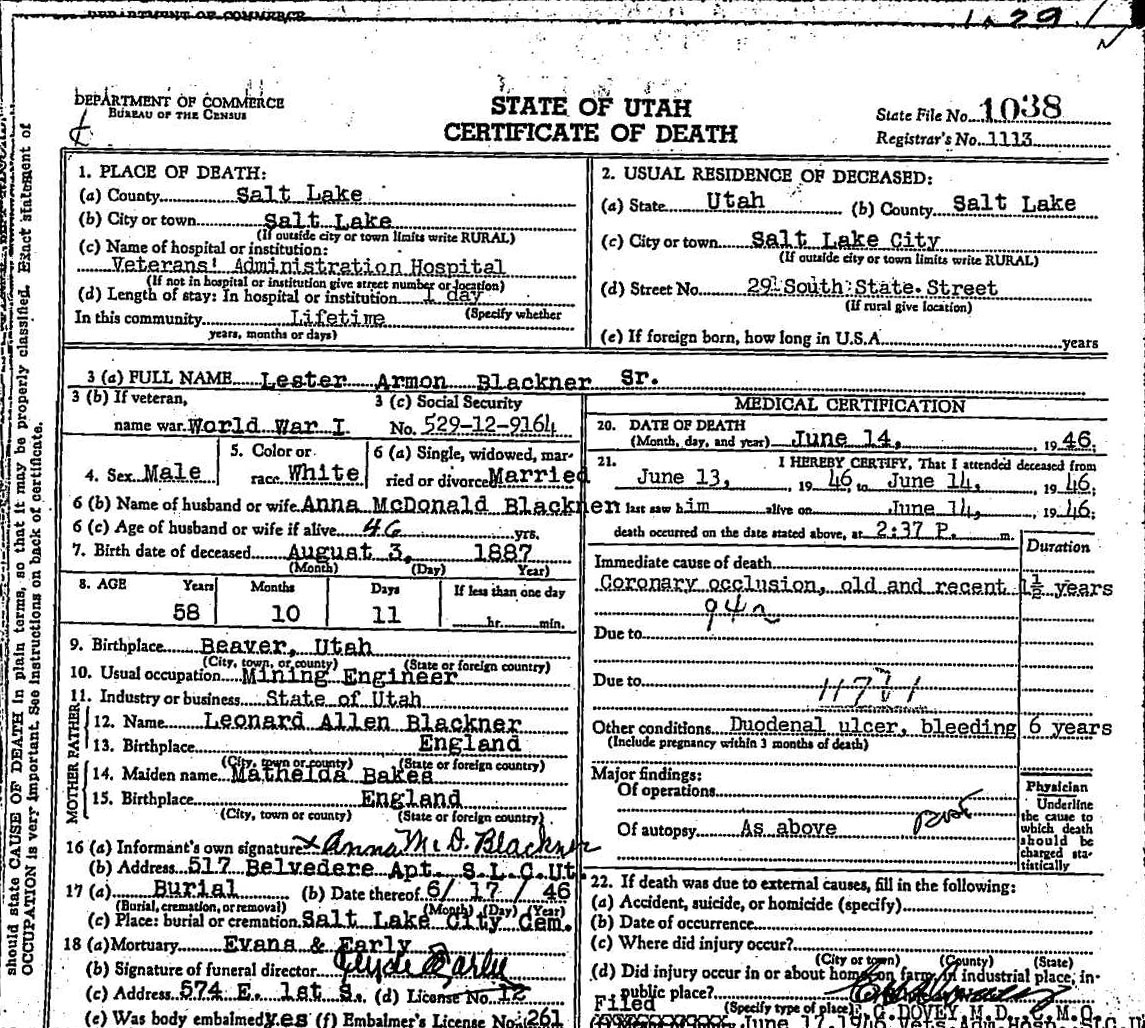 DEPARTMENT OF COMMERCE
DEPARTMENT OF COMMERCE
BUREAU OF THE CENSUS
STATE OF UTAH
CERTIFICATE OF DEATH
State File No. 1038
Registrar's No. 1113
should state CAUSE OF DEATH in plain terms, so that it may be properly classified. Exact statement of
OCCUPATION is very important. See instructions on back of certificate.
1. PLACE OF DEATH:
(a) County Salt Lake
(b) City or town Salt Lake
(If outside city or town limits write RURAL)
(c) Name of hospital or institution:
Veterans' Administration Hospital
(If not in hospital or institution give street number or location)
(d) Length of stay: In hospital or institution 1 day
(Specify whether
In this community Lifetime
years, months or days)
2. USUAL RESIDENCE OF DECEASED:
(a) State Utah (b) County Salt Lake
(c) City or town Salt Lake City
(If outside city or town limits write RURAL)
(d) Street No. 29 South State Street
(If rural give location)
(e) If foreign born, how long in U.S.A. years
3 (a) FULL NAME Lester Armon Blackner Sr.
3 (b) If veteran,
name war World War I
3 (c) Social Security
No. 529-12-9164
4. Sex Male
5. Color or
race White
6 (a) Single, widowed, mar-
ried or divorced Married
6 (b) Name of husband or wife Anna McDonald Blackner
6 (c) Age of husband or wife if alive 46 yrs.
7. Birth date of deceased August 3, 1887
(Month) (Day) Year)
8. AGE Years Months Days If less than one day
58 10 11 hr. min.
9. Birthplace Beaver, Utah
(City, town, or county) (State or foreign country)
10. Usual occupation Mining Engineer
11. Industry or business State of Utah
MOTHER FATHER
12. Name Leonard Allen Blackner
13. Birthplace England
(City, town or county) (State or foreign country)
14. Maiden name Mathelda Bakes
15. Birthplace England
(City, town or county) (State or foreign country)
16 (a) Informant's own signature x Anna Mc D. Blackner
(b) Address 517 Belvedere Apt. S.L.C.Ut.
17 (a) Burial (b) Date thereof 6/ 17 / 46
(Burial, cremation, or removal) (Month) (Day) (Year)
(c) Place: burial or cremation Salt Lake City Cem.
18 (a) Mortuary Evans & Early
(b) Signature of funeral director Clyde Early
(c) Address 574 E. 1st S. (d) License No. 12
(e) Was body embalmed yes (f) Embalmer's License No. 261
MEDICAL CERTIFICATION
20. DATE OF DEATH
(Month, day, and year) June 14, 19 46.
21. I HEREBY CERTIFY, That I attended deceased from
June 13, 19 46, to June 14, 19 46;
last saw him alive on June 14, 19 46;
death occurred on the date stated above, at 2:37 P. m.
Duration
Immediate cause of death
Coronary occlusion, old and recent 1½ years
94a
Due to
Due to
Other conditions Duodenal ulcer, bleeding 6 years
(Include pregnancy within 3 months of death)
Major findings:
Of operations
Of autopsy As above
Physician
Underline
the cause to
which death
should be
charged sta-
tistically
22. If death was due to external causes, fill in the following:
(a) Accident, suicide, or homicide (specify)
(b) Date of occurrence
(c) Where did injury occur?
(City or town) (County) (State)
(d) Did injury occur in or about home, on farm, in industrial place, in
public place?
(Specify type of place)
G. DOVEY, M.D.
Filed June 17, 1946